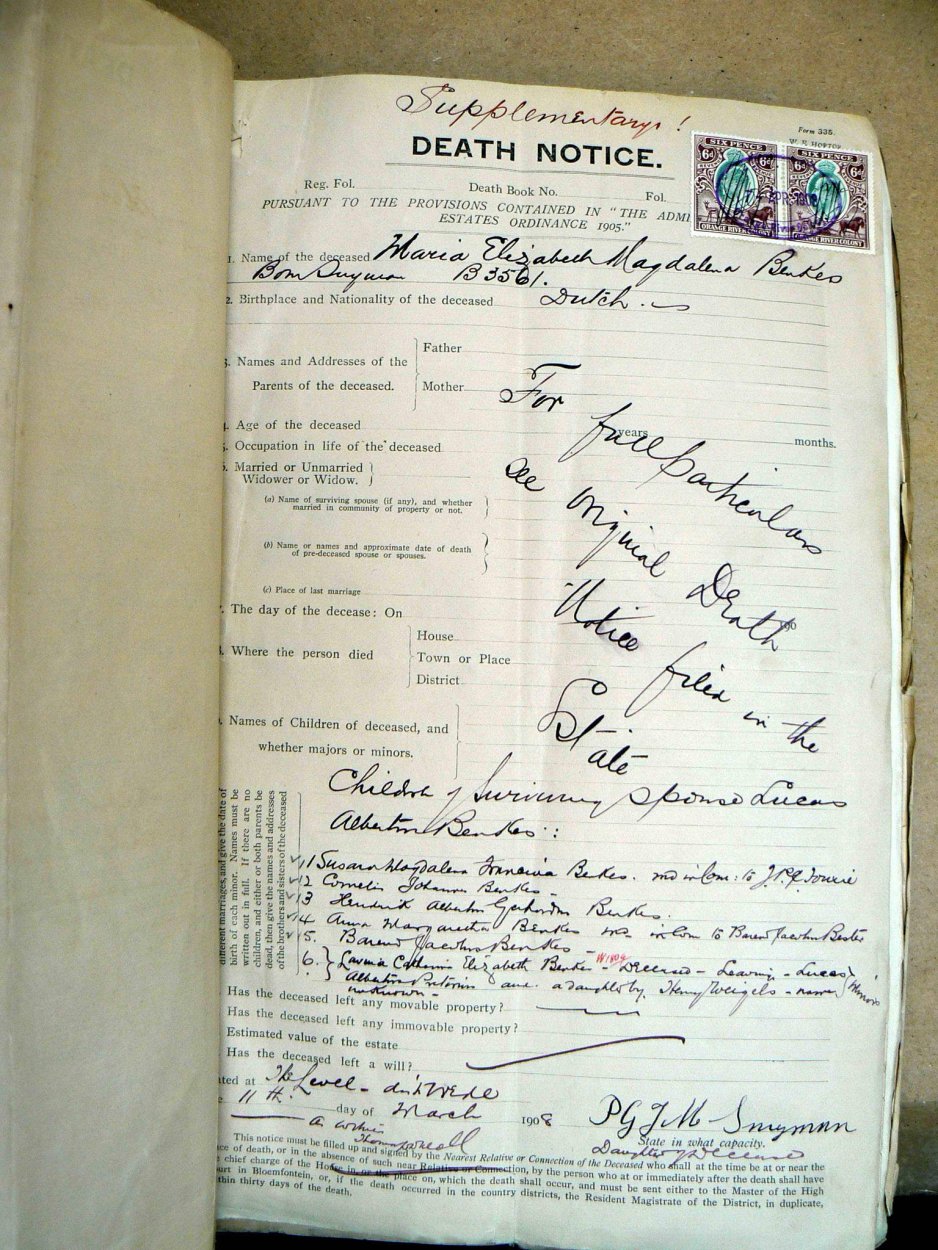 Supplementary!
Form 335.
DEATH NOTICE.
Reg. Fol. Death Book No. Fol.
PURSUANT TO THE PROVISIONS CONTAINED IN "THE ADMI
ESTATES ORDINANCE 1905."
SIX PENCE SIX PENCE
6d 6d 6d
ORANGE RIVER COLONY RIVER COLONY
1. Name of the deceased Maria Elizabeth Magdalena Benkes
Born Snyman B3561.
2. Birthplace and Nationality of the deceased Dutch.
3. Names and Addresses of the Parents of the deceased.
Father
Mother
4. Age of the deceased years months.
5. Occupation in life of the deceased
Married or Unmarried
Widower or Widow.
(a) Name of surviving spouse (if any), and whether
married in community of property or not.
(b) Name or names and approximate date of death
of pre-deceased spouse or spouses.
(c) Place of last marriage
The day of the decease: On 190
Where the person died
House
Town or Place
District
Names of Children of deceased, and
whether majors or minors.
For full particulars
see original Death
Notice filed in the
State
different marriages, and give the date of
birth of each minor. Names must be
written out in full. If there are no
children, and either or both parents be
dead, then give the names and addresses
of the brothers and sisters of the deceased
Children of surviving spouse Lucas
Albertus Benkes:
1 Susara Magdalena Francina Benkes. md in Com: to J.P.C. Fourie
2 Cornelis Johannes Benkes -
3 Hendrik Albertus Gerhardus Benkes.
4 Anna Margaretha Benkes md in Com to Barend Jacobus Bester
5. Barend Jacobus Benkes -
6. Lavinia Catharina Elizabeth Benkes - Deceased - Leaving - Lucas
Albertus Pretorius and a daughter by Henry Weigels - name
unknown - minors
Has the deceased left any movable property?
Has the deceased left any immovable property?
Estimated value of the estate
Has the deceased left a will?
ted at The Level - dist Wede
11th. day of March 1908
PGJM Snyman
As witness
State in what capacity.
Daughter of Deceased
This notice must be filled up and signed by the Nearest Relative or Connection of the Deceased who shall at the time be at or near the
ce of death, or in the absence of such near Relative or Connection, by the person who at or immediately after the death shall have
chief charge of the House in, or the place on, which the death shall occur, and must be sent either to the Master of the High
urt in Bloemfontein, or, if the death occurred in the country districts, the Resident Magistrate of the District, in duplicate,
thin thirty days of the death.